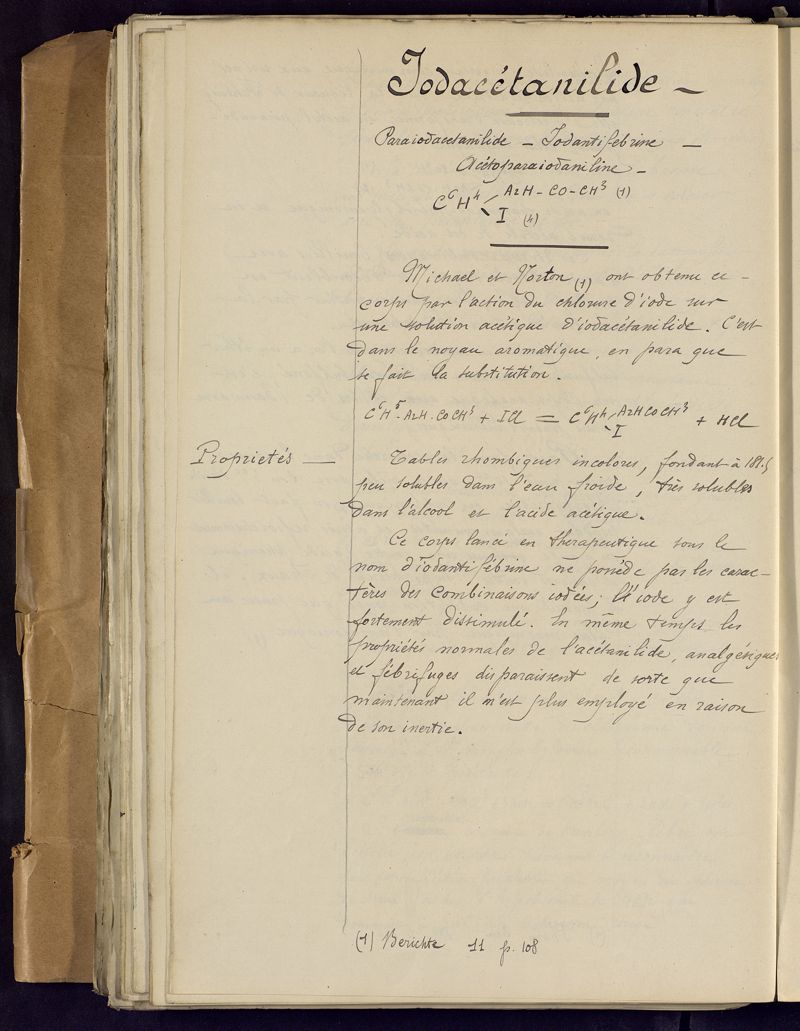 Iodacétanilide —
Paraiodacetanilide — Iodantifébrine —
Acétoparaiodaniline —
C⁶H⁴ AzH - CO - CH³ (1)
I (4)
Michael et Norton (1) ont obtenu ce
corps par l'action du chlorure d'iode sur
une solution acétique d'iodacétanilide. C'est
dans le noyau aromatique, en para que
se fait la substitution.
C⁶H⁵-AzH-COCH³ + ICl = C⁶H⁴ AzHCOCH³ + HCl
I
Proprietés —
Tables rhombiques incolores, fondant à 181.5
peu solubles dans l'eau froide, très solubles
dans l'alcool et l'acide acétique.
Ce corps lancé en therapeutique sous le
nom d'iodantifébrine ne possède pas les carac-
tères des combinaisons iodées; l'iode y est
fortement dissimulé. En même temps les
propriétés normales de l'acétanilide, analgésiques
et fébrifuges disparaissent de sorte que
maintenant il n'est plus employé en raison
de son inertie.
(1) Berichte 11 p. 108